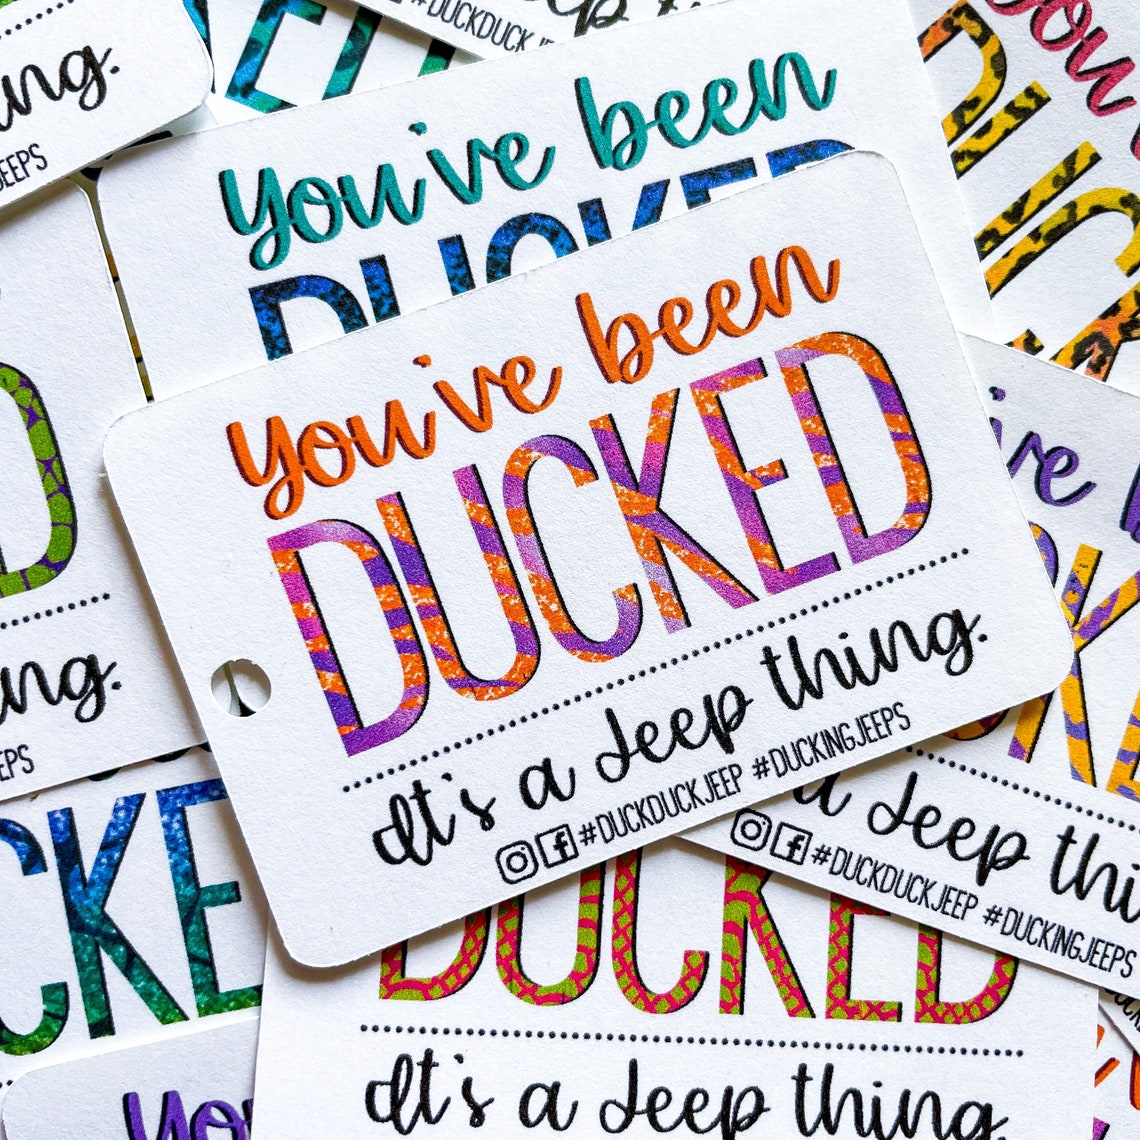 ing.
JEEPS
#DUCKDUCK
You've been
DUCKED
You've been
DUCKED
It's a Jeep thing.
#DUCKDUCKJEEP #DUCKINGJEEPS
You
DUC
've b
CK
a Jeep thi
#DUCKDUCKJEEP #DUCKINGJEEPS
D
ing.
EPS
CKE
DUCKED
It's a Jeep thing.
You